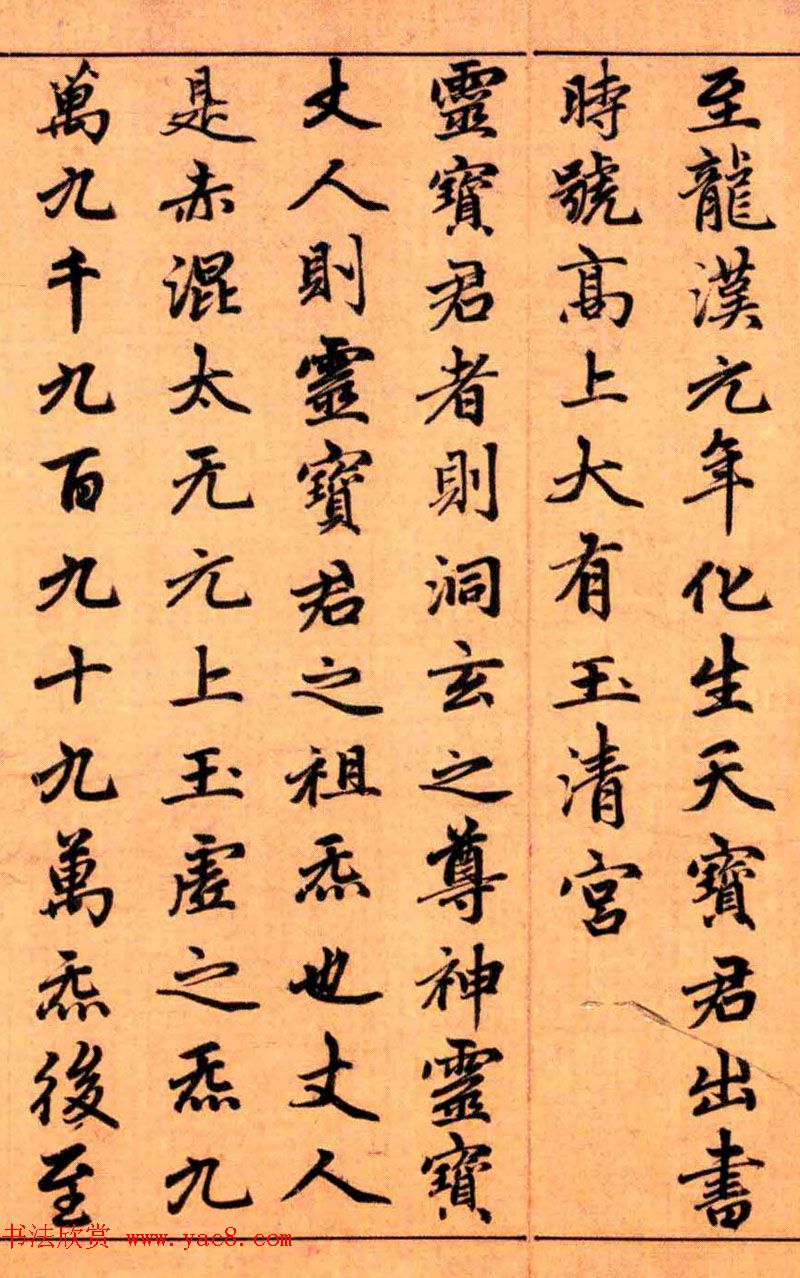 至龍漢元年化生天寶君出書
時號髙上大有玉清宮
靈寶君者則洞玄之尊神靈寶
丈人則靈寶君之祖炁也丈人
是赤混太无元上玉虛之炁九
萬九千九百九十九萬炁後至
书法欣赏 www.yac8.com